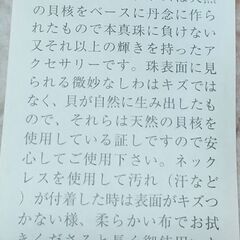 の貝核をベースに丹念に作ら
れたもので本真珠に負けない
又それ以上の輝きを持ったア
クセサリーです。珠表面に見
られる微妙なしわはキズでは
なく、貝が自然に生み出したも
ので、それらは天然の貝核を
使用している証しですので安
心してご使用下さい。ネック
レスを使用して汚れ(汗など
)が付着した時は表面がキズつ
かない様、柔らかい布でお拭